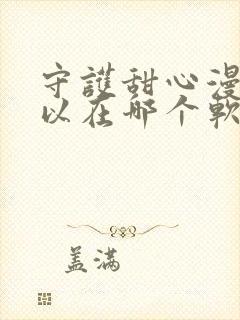 守護甜心漫
以在哪个軟
盖满